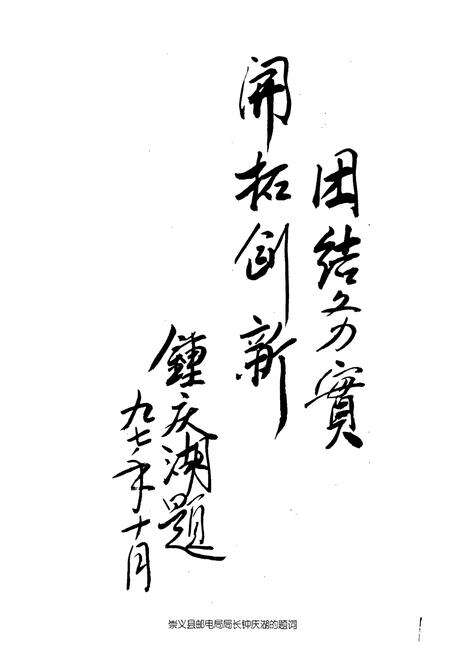 团结务實
開拓創新
鍾庆湖題
九七年十月
崇义县邮电局局长钟庆湖的题词